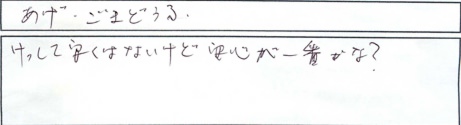 あげ・ごまどうふ.
けっして安くはないけど安心が一番かな?